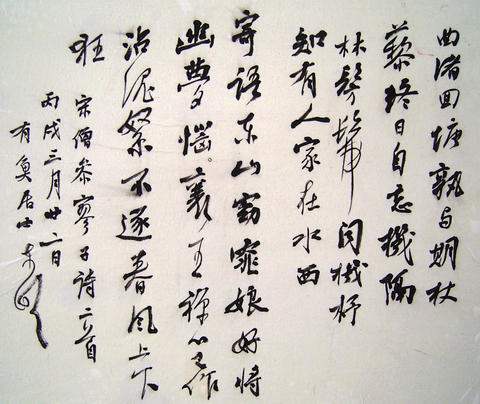 曲渚回塘孰与期杖
藜終日自忘機隔
林髣髴闻機杼
知有人家在水西
寄语东山窈窕娘好将
幽夢惱襄王禅心已作
沾泥絮不逐春风上下
狂 宋僧参寥子诗二首
丙戌三月廿二日
有魚居士